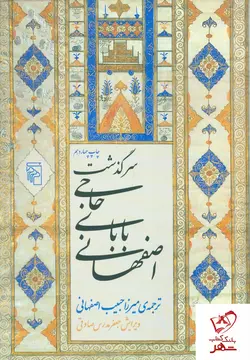 چاپ چهاردهم
سرگذشت
حاجی
بابای
اصفهانی
ترجمه‌ی میرزا حبیب اصفهانی
ویرایش جعفر مدرس صادقی
بانک کتاب
شهر